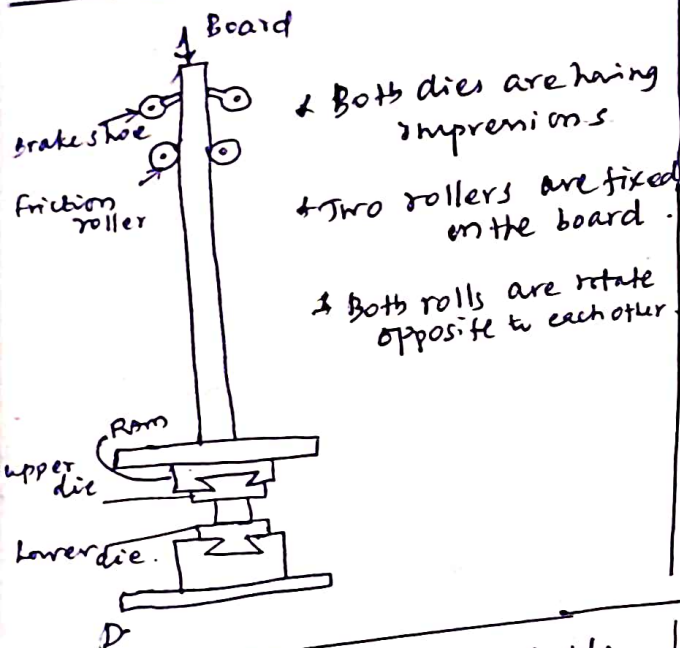 Board
Brake shoe
Friction
roller
* Both dies are having
impressions
* Two rollers are fixed
on the board.
* Both rolls are rotate
opposite to each other.
RAM
upper
die
Lower die.
D